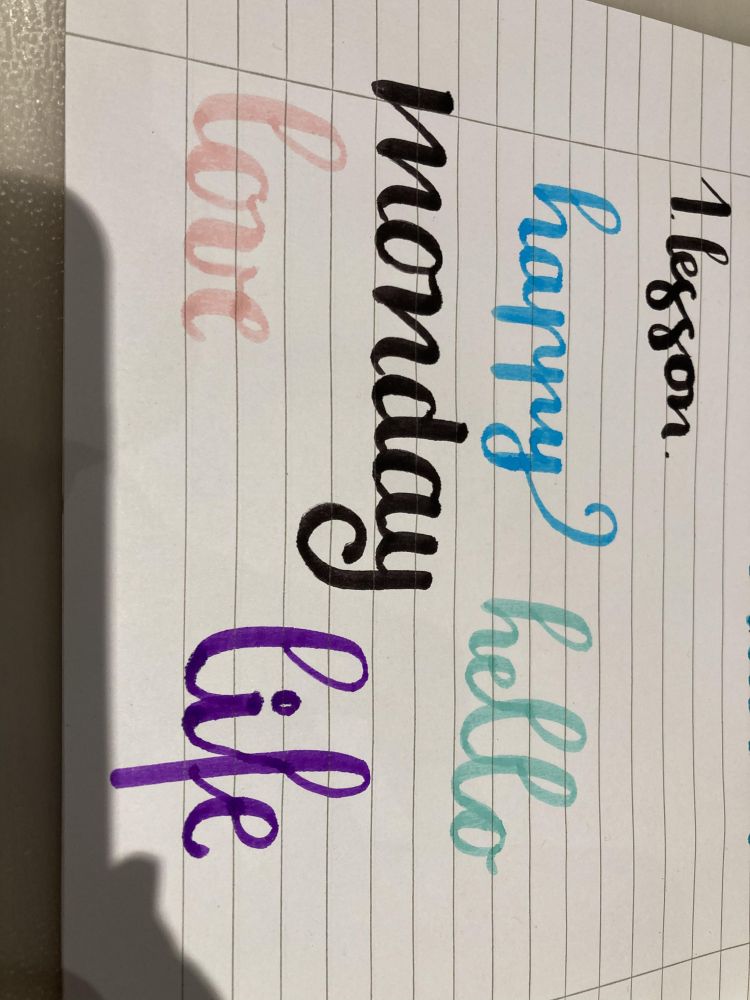 1. lesson.
happy hello
monday
love life